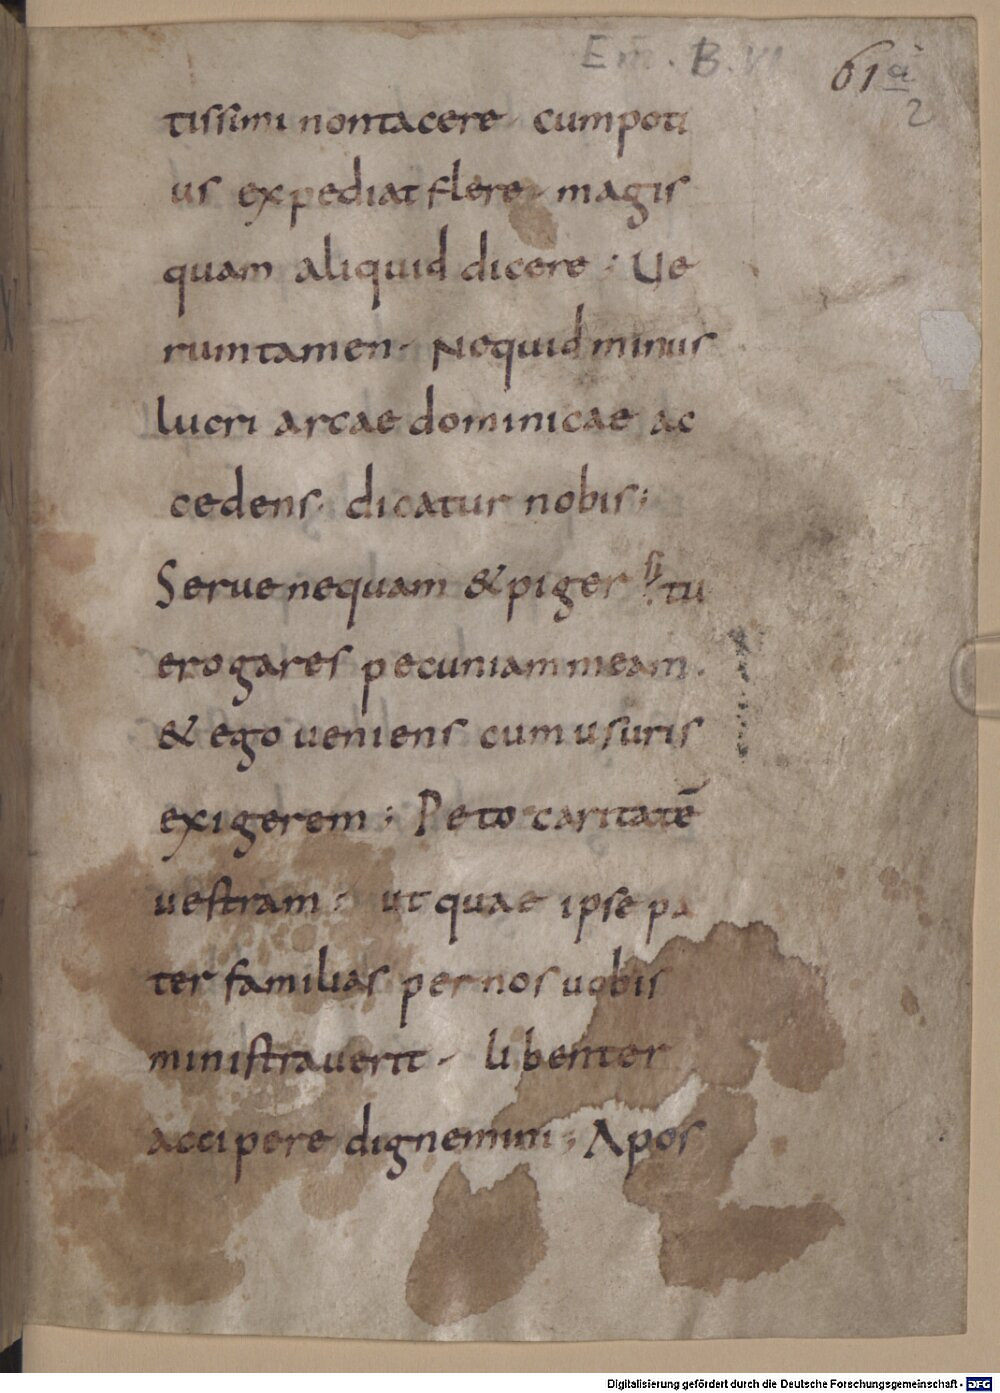 Em̄. B. VI
61 a
2
tissimi non tacere cum poti
us expediat flere magis
quam aliquid dicere ; Ue
rumtamen . Ne quid minus
lucri arcae dominicae ac
cedens . dicatur nobis ;
Serue nequam & piger si tu
erogares pecuniam meam .
& ego ueniens cum usuris
exigerem ; Peto caritatē
uestram ; ut quae ipse pa
ter familias per nos uobis
ministrauerit - libenter
accipere dignemini ; Apos
Digitalisierung gefördert durch die Deutsche Forschungsgemeinschaft - DFG